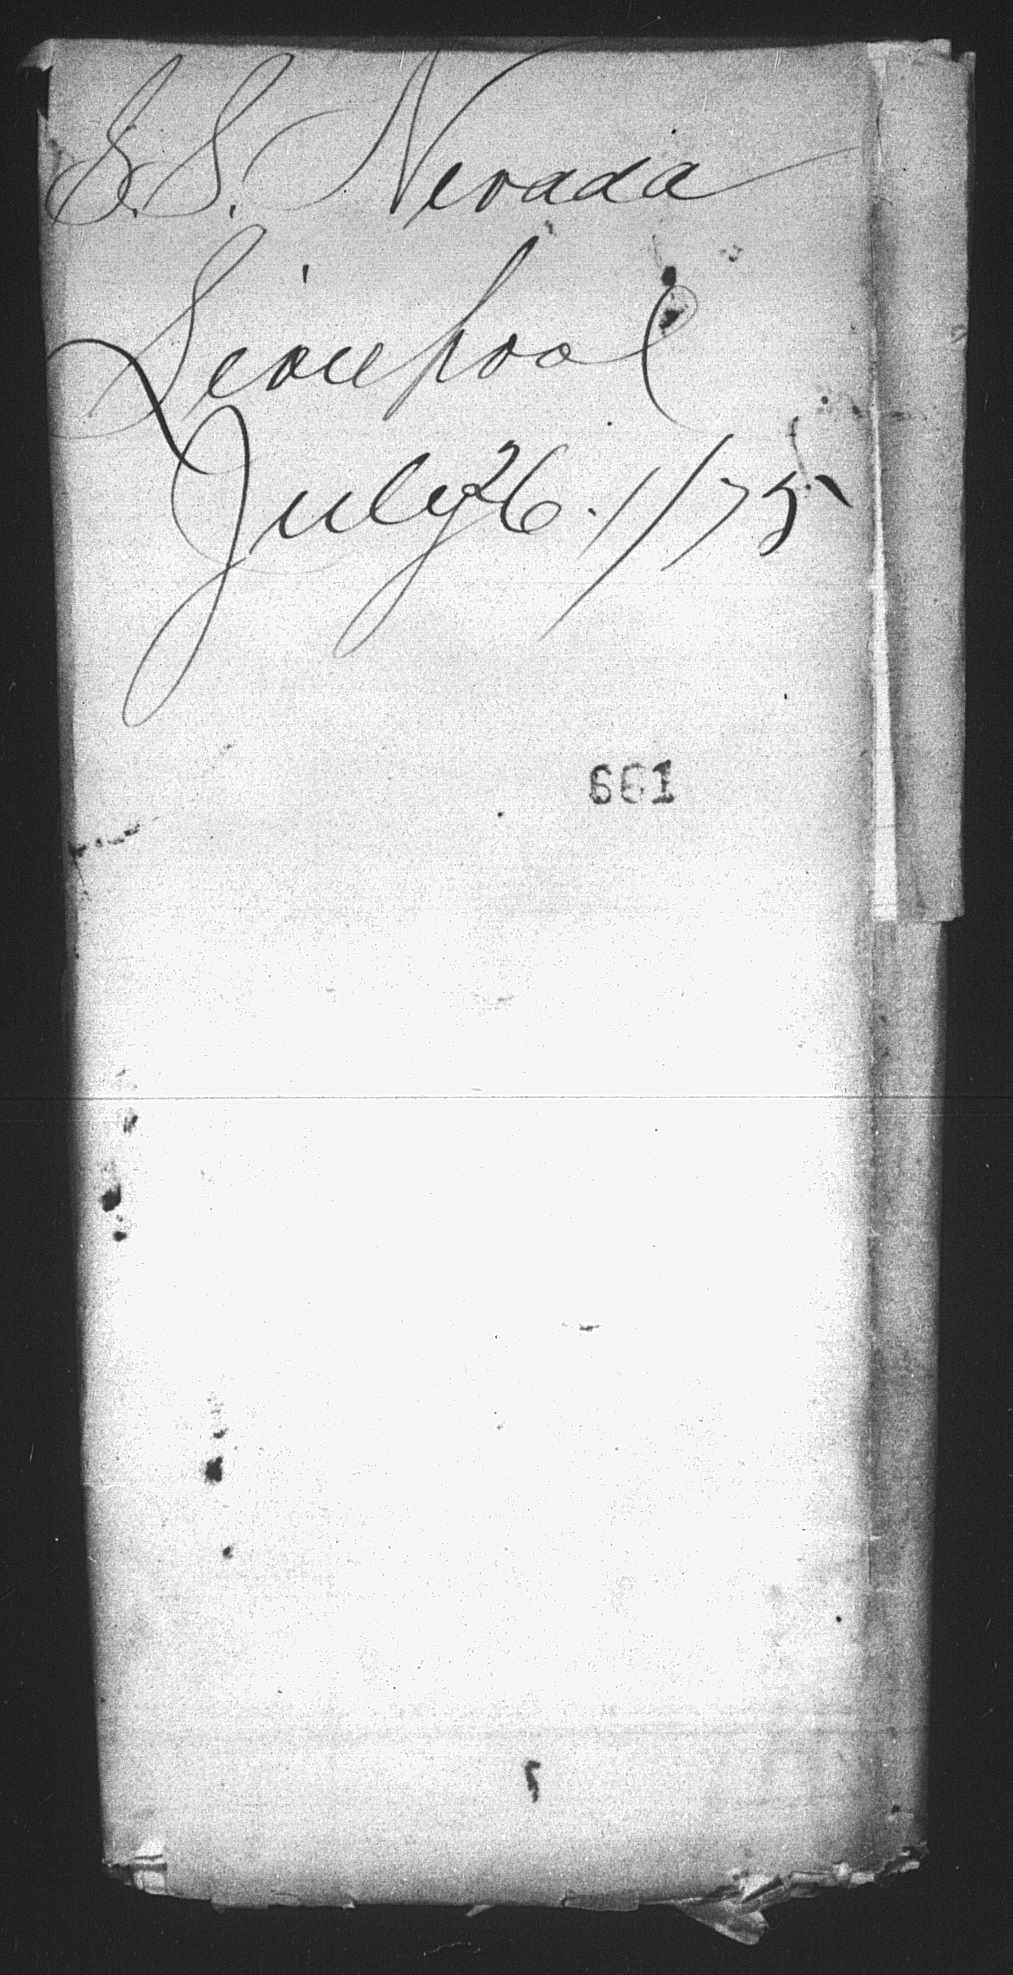 S.S. Nevada
Liverpool
July 26. / / 75
661